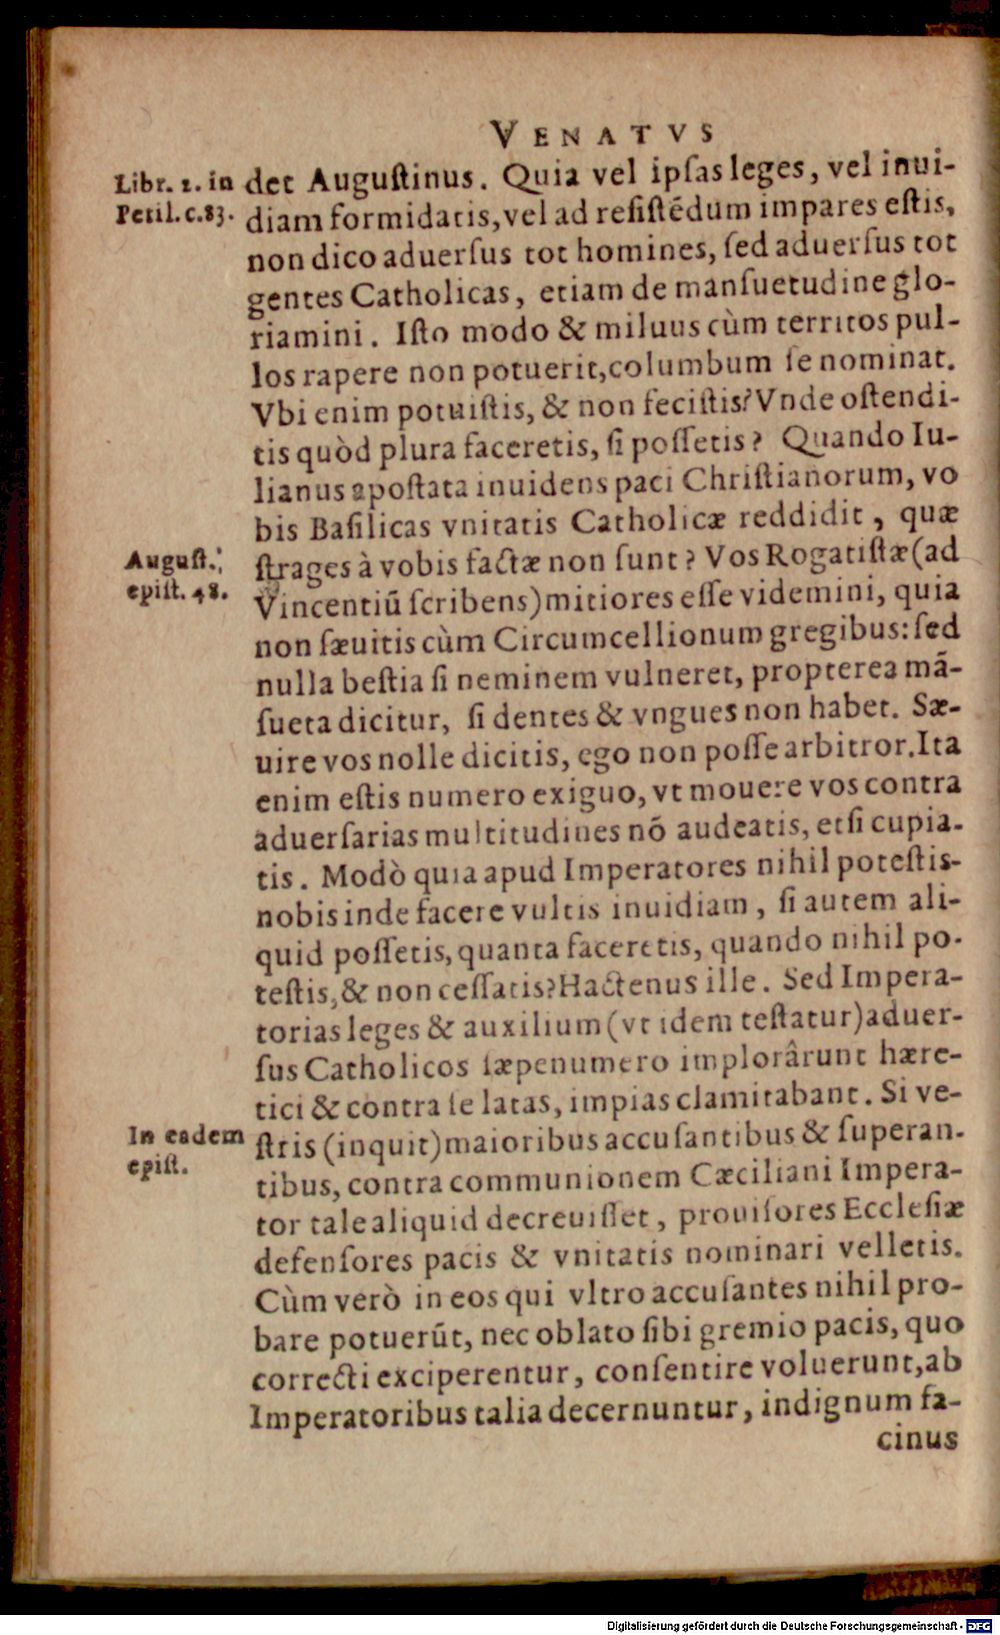 VENATVS
Libr. 2. in
Petil. c. 83.
det Augustinus. Quia vel ipsas leges, vel inui-
diam formidatis, vel ad resistẽdum impares estis,
non dico aduersus tot homines, sed aduersus tot
gentes Catholicas, etiam de mansuetudine glo-
riamini. Isto modo & miluus cùm territos pul-
los rapere non potuerit, columbum se nominat.
Vbi enim potuistis, & non fecistis? Vnde ostendi-
tis quòd plura faceretis, si possetis? Quando Iu-
lianus apostata inuidens paci Christianorum, vo
bis Basilicas vnitatis Catholicæ reddidit, quæ
August.
epist. 48.
strages à vobis factæ non sunt? Vos Rogatistæ (ad
Vincentiũ scribens) mitiores esse videmini, quia
non sæuitis cùm Circumcellionum gregibus: sed
nulla bestia si neminem vulneret, propterea mã-
sueta dicitur, si dentes & vngues non habet. Sæ-
uire vos nolle dicitis, ego non posse arbitror. Ita
enim estis numero exiguo, vt mouere vos contra
aduersarias multitudines nõ audeatis, etsi cupia-
tis. Modò quia apud Imperatores nihil potestis-
nobis inde facere vultis inuidiam, si autem ali-
quid possetis, quanta faceretis, quando nihil po-
testis, & non cessatis? Hactenus ille. Sed Impera-
torias leges & auxilium (vt idem testatur) aduer-
sus Catholicos sæpenumero implorârunt hære-
tici & contra se latas, impias clamitabant. Si ve-
In eadem
epist.
stris (inquit) maioribus accusantibus & superan-
tibus, contra communionem Cæciliani Impera-
tor tale aliquid decreuisset, prouisores Ecclesiæ
defensores pacis & vnitatis nominari velletis.
Cùm verò in eos qui vltro accusantes nihil pro-
bare potuerũt, nec oblato sibi gremio pacis, quo
correcti exciperentur, consentire voluerunt, ab
Imperatoribus talia decernuntur, indignum fa-
cinus
Digitalisierung gefördert durch die Deutsche Forschungsgemeinschaft - DFG